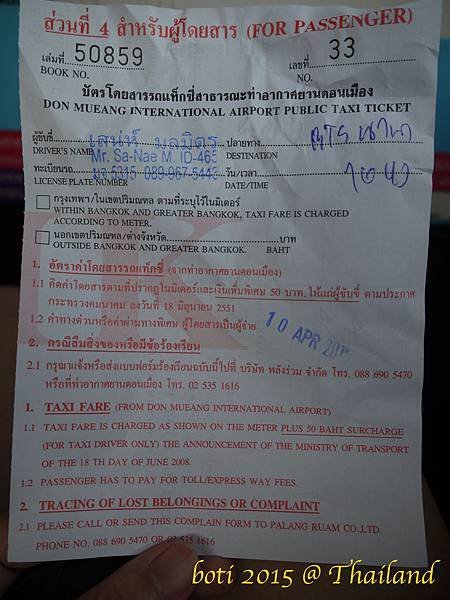 ส่วนที่ 4 สำหรับผู้โดยสาร (FOR PASSENGER)
เล่มที่ 50859 เลขที่ 33
BOOK NO. NO.
บัตรโดยสารรถแท็กซี่สาธารณะท่าอากาศยานดอนเมือง
DON MUEANG INTERNATIONAL AIRPORT PUBLIC TAXI TICKET
ผู้ขับขี่ เสน่ห์ มลมิตร ปลายทาง BTS นานา
DRIVER'S NAME Mr. Sa-Nae M. ID-465 DESTINATION
ทะเบียนรถ มล 5315 089-967-5443 วัน/เวลา
LICENSE PLATE NUMBER DATE/TIME
กรุงเทพฯ/ในเขตปริมณฑล ตามที่ระบุไว้ในมิเตอร์
WITHIN BANGKOK AND GREATER BANGKOK, TAXI FARE IS CHARGED
ACCORDING TO METER.
นอกเขตปริมณฑล/ต่างจังหวัด..........บาท
OUTSIDE BANGKOK AND GREATER BANGKOK. BAHT
1. อัตราค่าโดยสารรถแท็กซี่ (จากท่าอากาศยานดอนเมือง)
1.1 คิดค่าโดยสารตามที่ปรากฏในมิเตอร์และเงินเพิ่มพิเศษ 50 บาท ให้แก่ผู้ขับขี่ ตามประกาศ
กระทรวงคมนาคม ลงวันที่ 18 มิถุนายน 2551
1.2 ค่าทางด่วนหรือค่าผ่านทางพิเศษ ผู้โดยสารเป็นผู้จ่าย
10 APR
2. กรณีลืมสิ่งของหรือมีข้อร้องเรียน
2.1 กรุณาแจ้งหรือส่งแบบฟอร์มร้องเรียนฉบับนี้ไปที่ บริษัท พลังร่วม จำกัด โทร. 088 690 5470
หรือที่ท่าอากาศยานดอนเมือง โทร. 02 535 1616
1. TAXI FARE (FROM DON MUEANG INTERNATIONAL AIRPORT)
1.1 TAXI FARE IS CHARGED AS SHOWN ON THE METER PLUS 50 BAHT SURCHARGE
(FOR TAXI DRIVER ONLY) THE ANNOUNCEMENT OF THE MINISTRY OF TRANSPORT
OF THE 18 TH DAY OF JUNE 2008.
1.2 PASSENGER HAS TO PAY FOR TOLL/EXPRESS WAY FEES.
2. TRACING OF LOST BELONGINGS OR COMPLAINT
2.1 PLEASE CALL OR SEND THIS COMPLAIN FORM TO PALANG RUAM CO.,LTD.
PHONE NO. 088 690 5470 OR 02 535 1616
boti 2015 @ Thailand